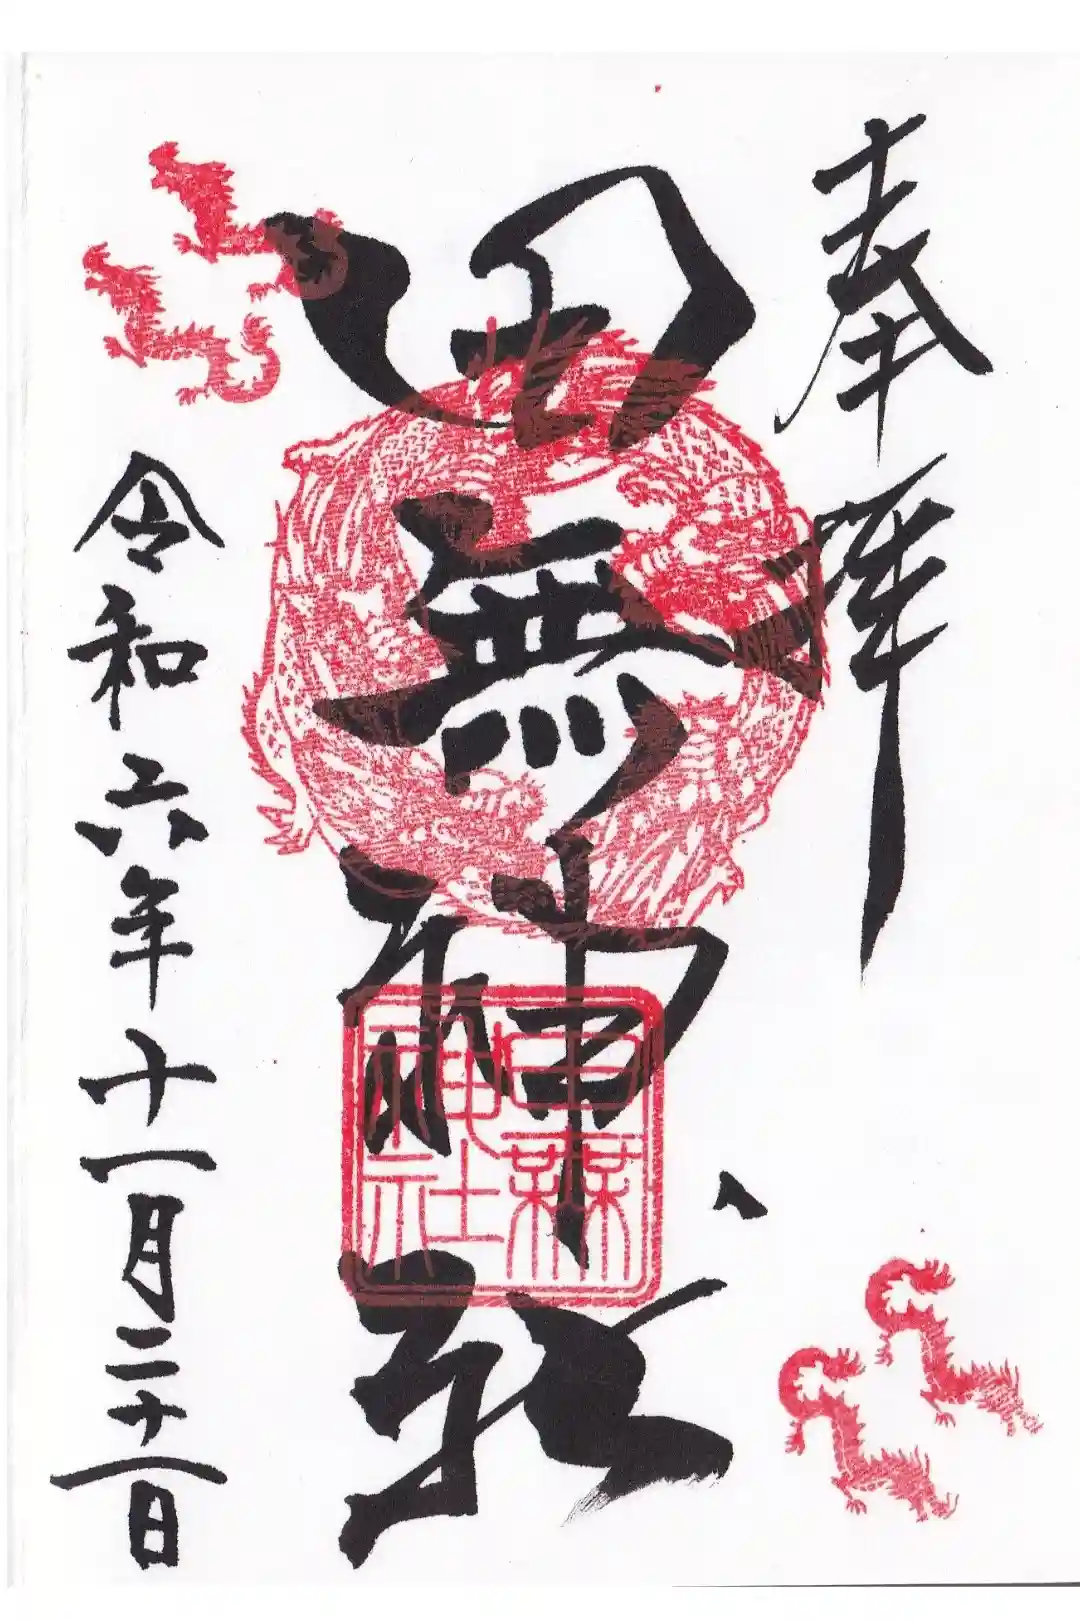 奉拝
田無神社
田無神社
令和六年十一月二十一日